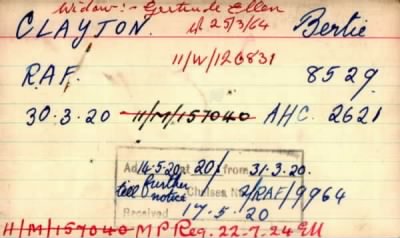 Widow:- Gertrude Ellen
CLAYTON. d 25/3/64 Bertie
11/W/126831
RAF. 8529
30.3.20 11/M/157040 AHC. 2621
Ad 14.5.20 at 20/- from 31.3.20.
till further notice Chelsea No 2/RAF/9964
Received 17.5.20
11/M/157040 MP Reg. 22.7.24